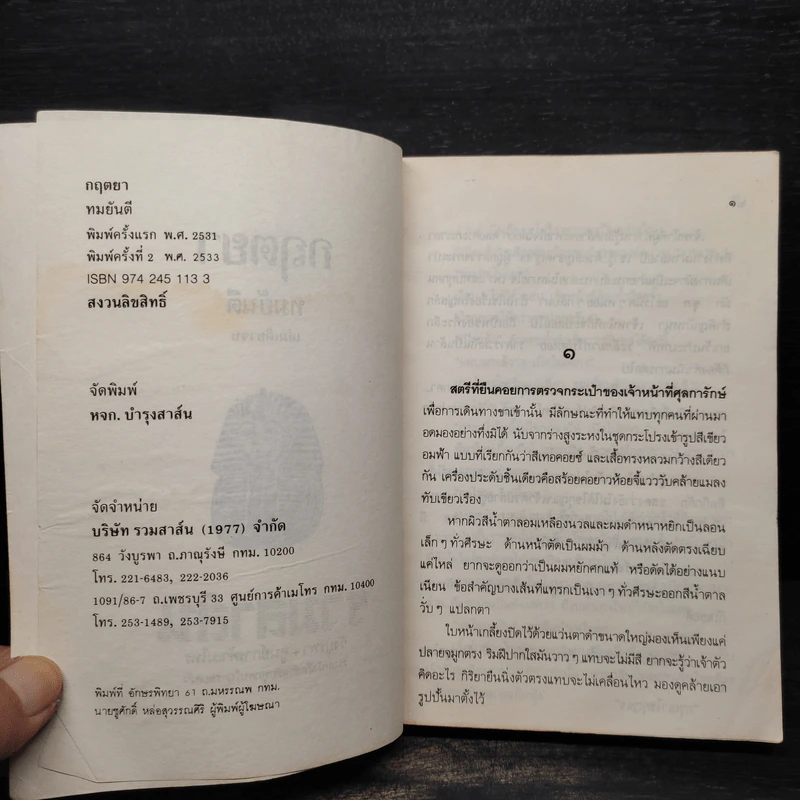 กฤตยา
ทมยันตี
พิมพ์ครั้งแรก พ.ศ. 2531
พิมพ์ครั้งที่ 2 พ.ศ. 2533
ISBN 974 245 113 3
สงวนลิขสิทธิ์
จัดพิมพ์
หจก. บำรุงสาส์น
จัดจำหน่าย
บริษัท รวมสาส์น (1977) จำกัด
864 วังบูรพา ถ.ภาณุรังษี กทม. 10200
โทร. 221-6483, 222-2036
1091/86-7 ถ.เพชรบุรี 33 ศูนย์การค้าเมโทร กทม. 10400
โทร. 253-1489, 253-7915
พิมพ์ที่ อักษรพิทยา 61 ถ.มหรรณพ กทม.
นายชูศักดิ์ หล่อสุวรรณศิริ ผู้พิมพ์ผู้โฆษณา
๑
๑
สตรีที่ยืนคอยการตรวจกระเป๋าของเจ้าหน้าที่ศุลการักษ์
เพื่อการเดินทางขาเข้านั้น มีลักษณะที่ทำให้แทบทุกคนที่ผ่านมา
อดมองอย่างทึ่งมิได้ นับจากร่างสูงระหงในชุดกระโปรงเข้ารูปสีเขียว
อมฟ้า แบบที่เรียกกันว่าสีเทอคอยซ์ และเสื้อทรงหลวมกว้างสีเดียว
กัน เครื่องประดับชิ้นเดียวคือสร้อยคอยาวห้อยจี้แวววับคล้ายแมลง
ทับเขียวเรือง
หากผิวสีน้ำตาลอมเหลืองนวลและผมดำหนาหยิกเป็นลอน
เล็กๆ ทั่วศีรษะ ด้านหน้าตัดเป็นผมม้า ด้านหลังตัดตรงเฉียบ
แค่ไหล่ ยากจะดูออกว่าเป็นผมหยักศกแท้ หรือดัดได้อย่างแนบ
เนียน ข้อสำคัญบางเส้นที่แทรกเป็นเงาๆ ทั่วศีรษะออกสีน้ำตาล
วับๆ แปลกตา
ใบหน้าเกลี้ยงปิดไว้ด้วยแว่นตาดำขนาดใหญ่มองเห็นเพียงแค่
ปลายจมูกตรง ริมฝีปากใสมันวาวๆ แทบจะไม่มีสี ยากจะรู้ว่าเจ้าตัว
คิดอะไร กิริยายืนนิ่งตัวตรงแทบจะไม่เคลื่อนไหว มองดูคล้ายเอา
รูปปั้นมาตั้งไว้